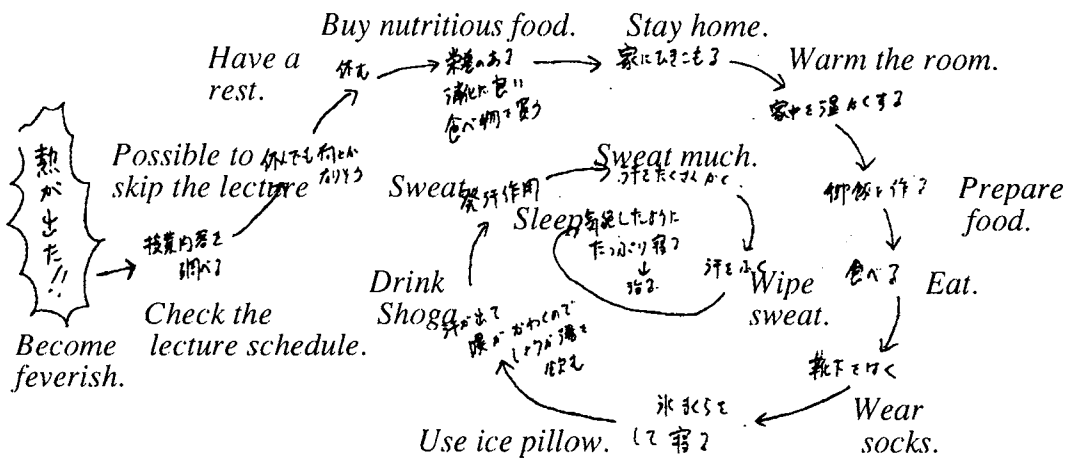 熱が出た!!
Become
feverish.
授業内容を
調べる
Check the
lecture schedule.
休んでも何とか
なりそう
Possible to
skip the lecture
休む
Have a
rest.
栄養のある
消化に良い
食べ物を買う
Buy nutritious food.
家にひきこもる
Stay home.
家中を温かくする
Warm the room.
御飯を作る
Prepare
food.
食べる
Eat.
靴下をはく
Wear
socks.
氷まくらを
して寝る
Use ice pillow.
汗が出て
喉がかわくので
しょうが湯を
飲む
Drink
Shoga
発汗作用
Sweat
汗をたくさんかく
Sweat much.
汗をふく
Wipe
sweat.
気絶したように
たっぷり寝る
治る
Sleep